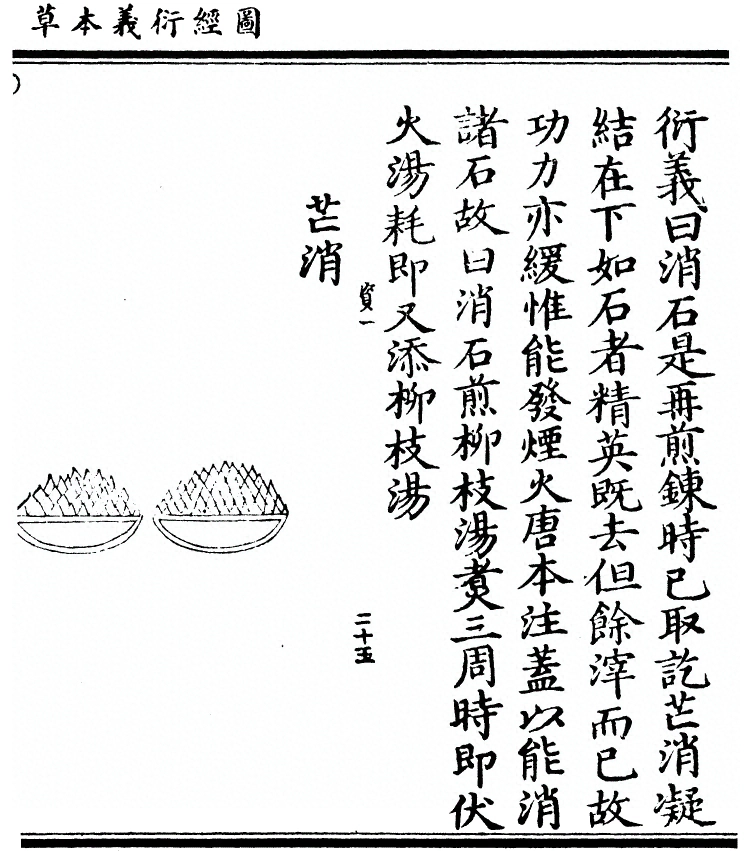 草本義衍經圖
衍義曰消石是再煎鍊時已取訖芒消凝
結在下如石者精英既去但餘滓而已故
功力亦緩惟能發煙火唐本注蓋以能消
諸石故曰消石煎柳枝湯煑三周時即伏
火湯耗即又添柳枝湯
二十五
芒消